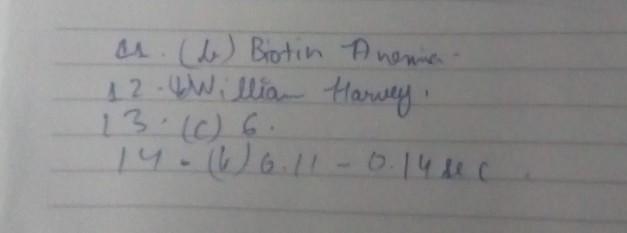 11. (b) Biotin Anemia.
12. William Harvey.
13. (c) 6.
14. (b) 0.11 - 0.14 sec.